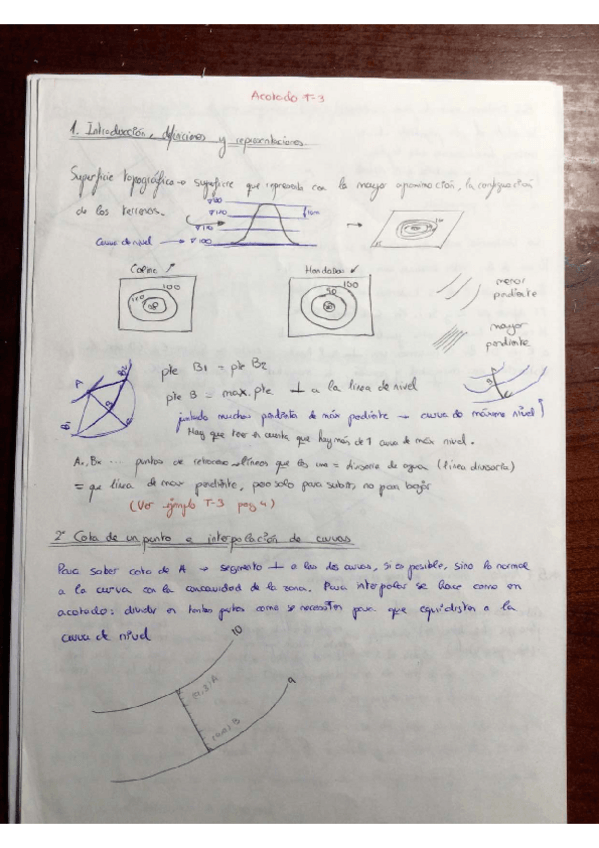 Acotado T-3
1. Introducción, definiciones y representaciones
Superficie topográfica → superficie que representa con la mayor aproximación, la configuración
de los terrenos.
Curva de nivel → ▽100
▽110
10m
Colina ↗
Hondonada ↙
100
90
menor
pendiente
mayor
pendiente
A
B
B1
B2
C
pte B1 = pte B2
pte B = max. pte ⊥ a la línea de nivel
juntando muchos pendientes de máx pendiente → curva de máximo nivel
Hay que tener en cuenta que hay más de 1 curva de máx nivel.
A, B... puntos de retroceso → líneas que los une = divisoria de agua (línea divisoria)
= que línea de max pendiente, pero solo para subir, no para bajar
(Ver ejemplo T-3 pag 4)
2º Cota de un punto e interpolación de curvas
Para saber cota de A → segmento ⊥ a las dos curvas, si es posible, sino la normal
a la curva con la concavidad de la zona. Para interpolar se hace como en
acotado: dividir en tantas partes como se necesiten para que equidisten a la
curva de nivel
10
9